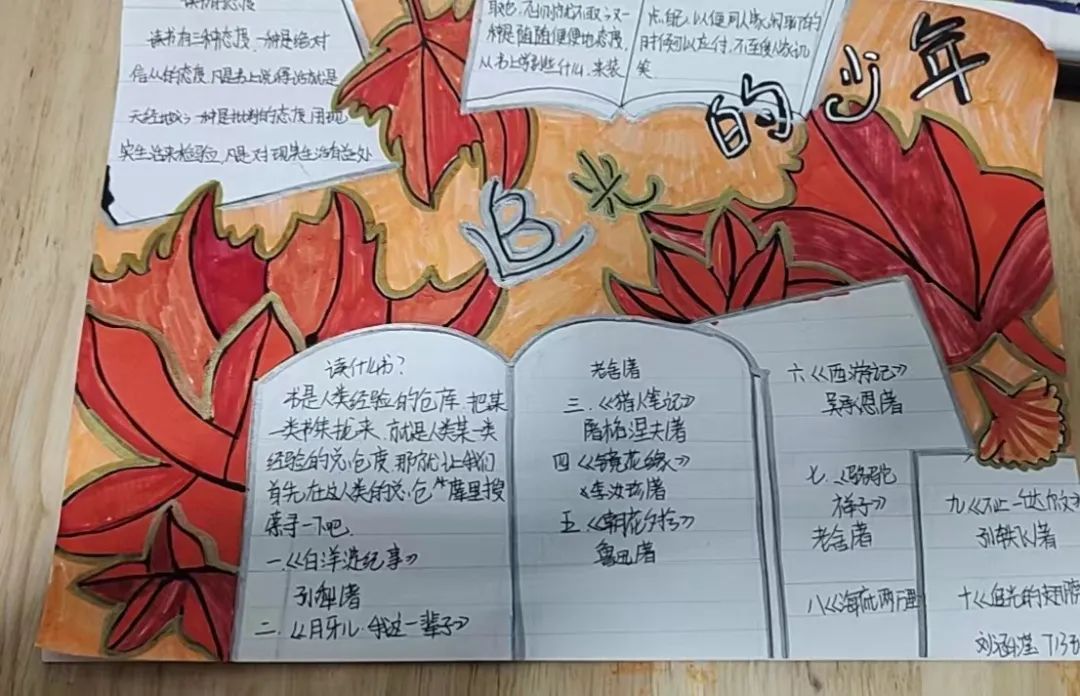 读书的态度
读书有三种态度,一种是绝对
信从的态度,凡是书上说得话就是
天经地义;一种是批判的态度,用现
实生活来检验,凡是对现实生活有益处
取它,否则就不取;又一
种是随随便便地态度,
从书上学到些什么,来装
点自己,以便同人家闲聊的
时候可以应付,不至使人家讥
笑
追光的少年
读什么书?
书是人类经验的仓库,把某
一类书集拢来,就是人类某一类
经验的总仓度,那就让我们
首先在这人类的总仓库里搜
寻一下吧.
一.《白洋淀纪事》
孙犁著
二.《月牙儿·我这一辈子》
老舍著
三.《猎人笔记》
屠格涅夫著
四《镜花缘》
李汝珍著
五《朝花夕拾》
鲁迅著
六《西游记》
吴承恩著
七.《骆驼
祥子》
老舍著
八《海底两万里
九《不止一
孙轶飞著
十《追光的翅膀